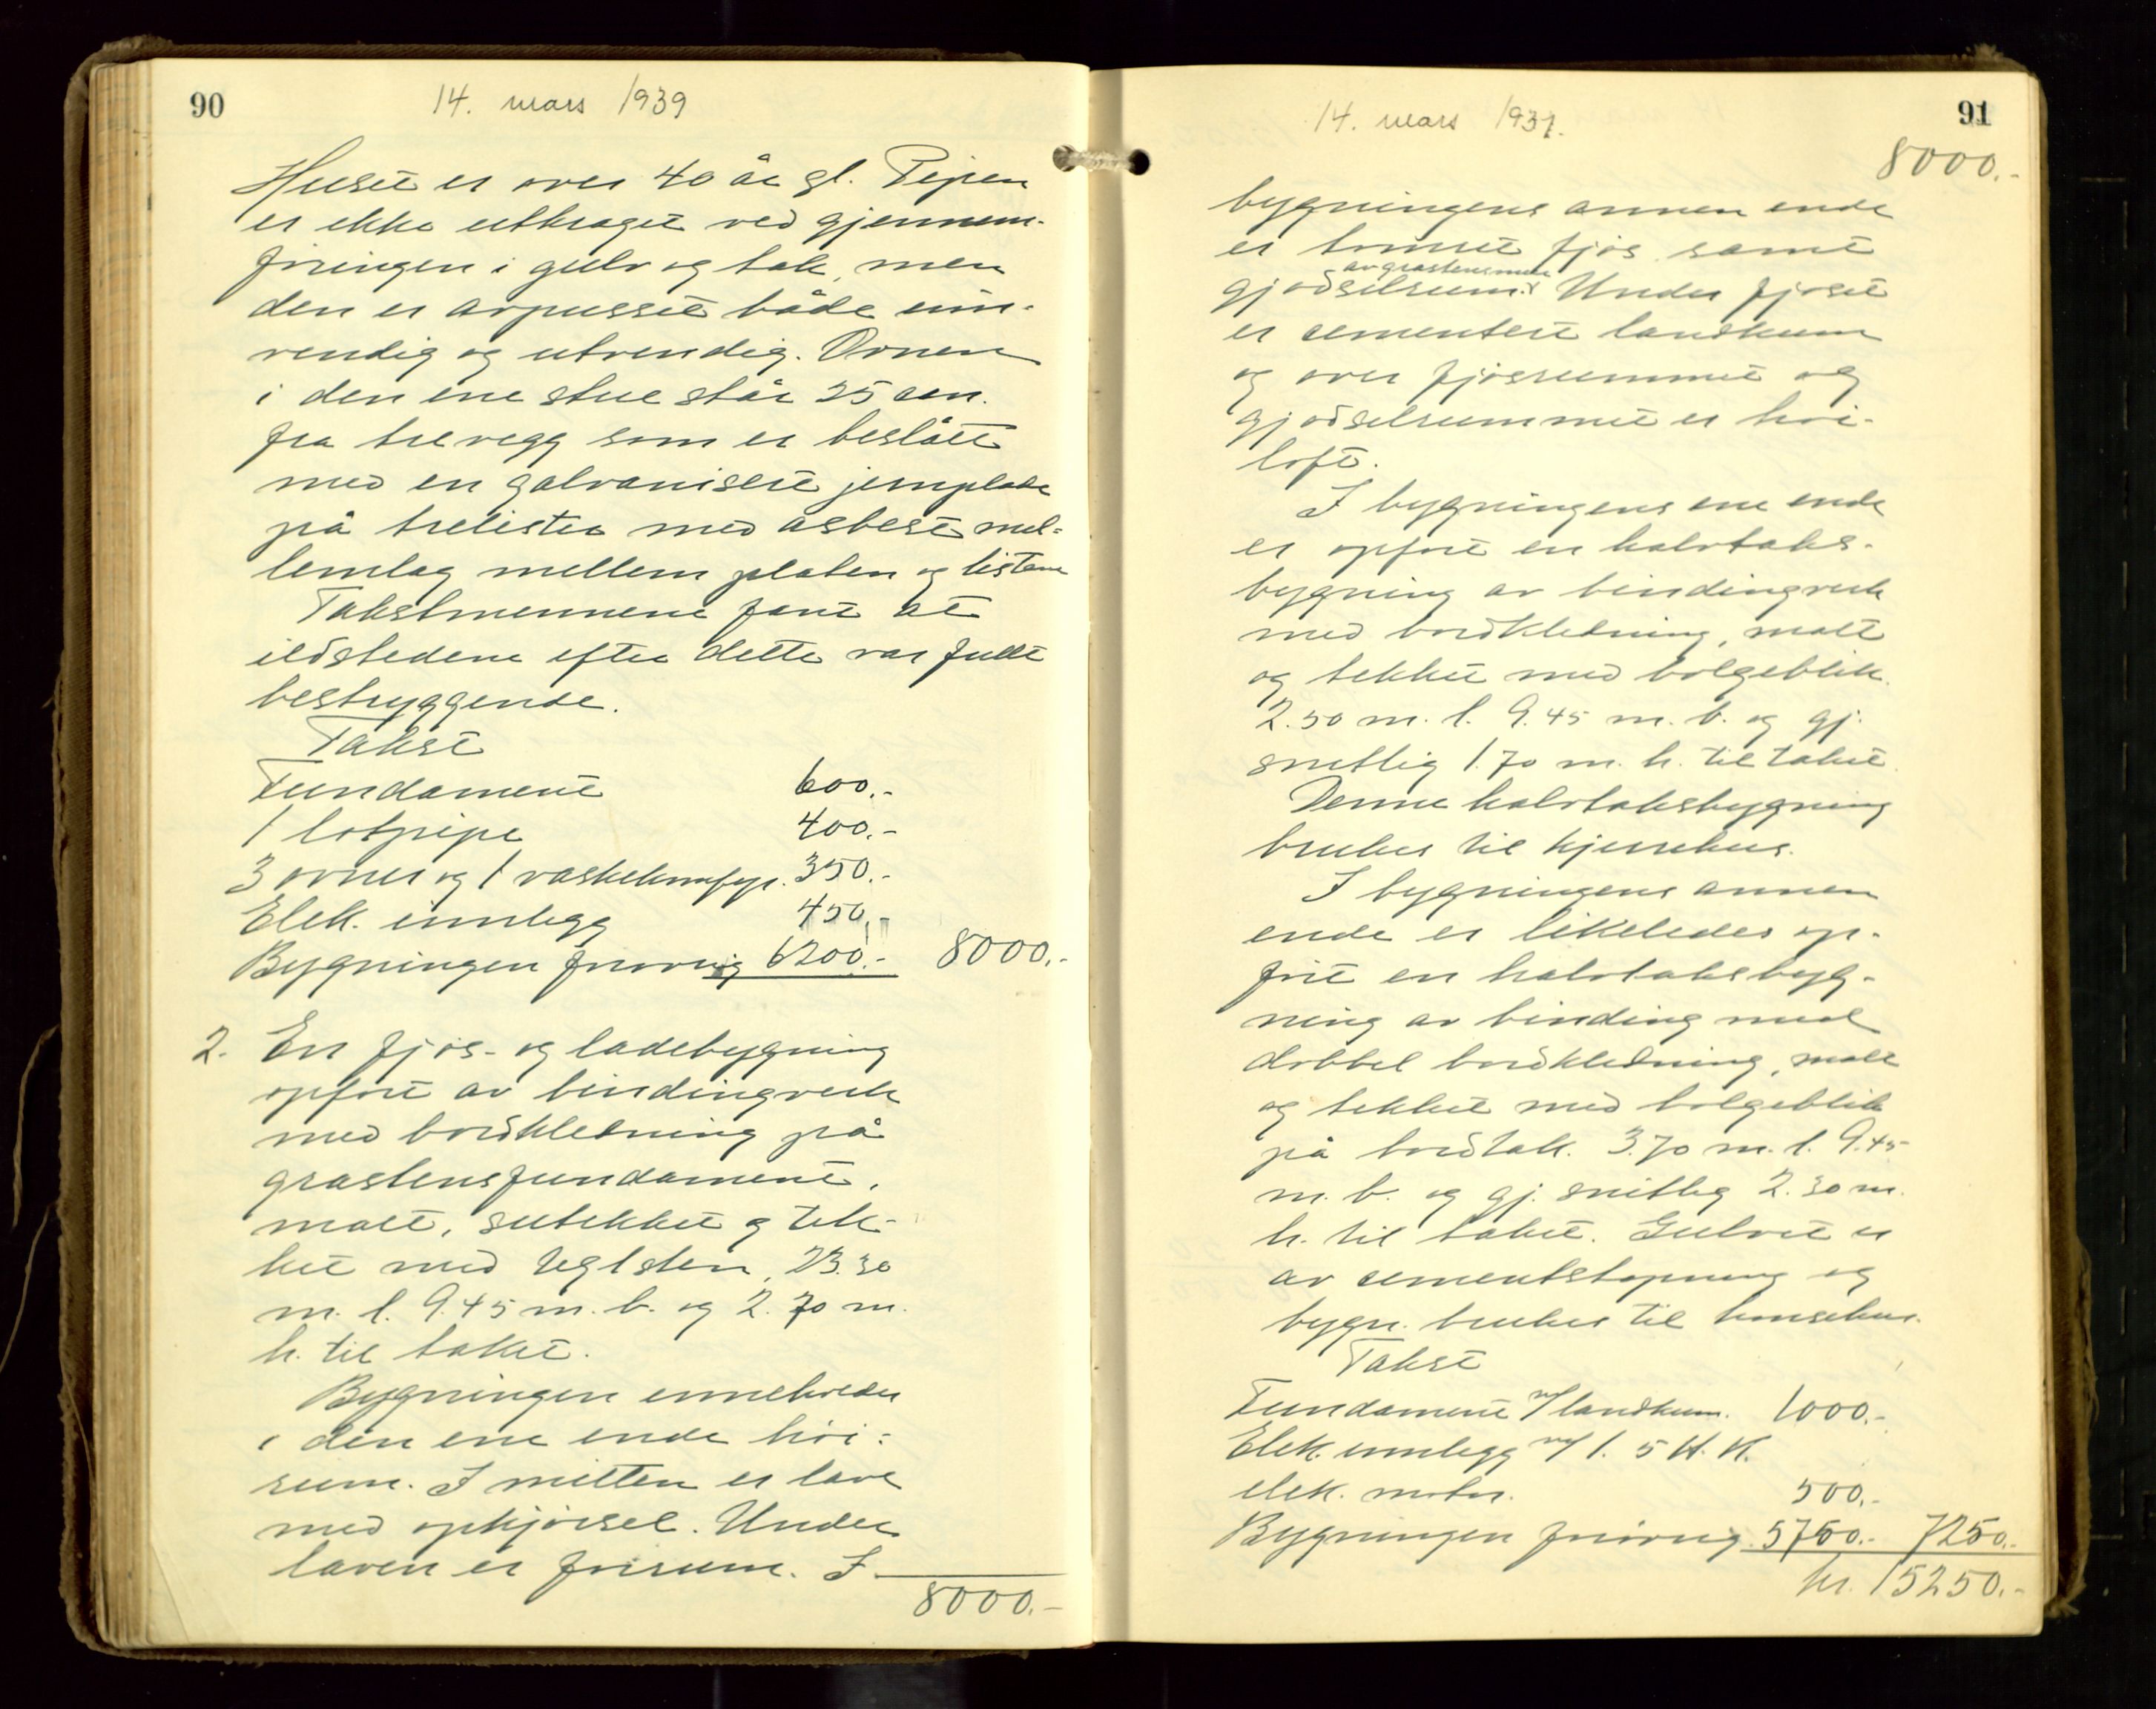 90
14. mars 1939
Huset er over 40 år gl. Pipen
er ikke utkraget ved gjennem-
føringen i gulv og tak, men
den er avpusset både inn-
vendig og utvendig. Ovnen
i den ene stue står 25 cm.
fra trevegg som er beslått
med en galvanisert jernplate
på trelister med asbest mel-
lemlag mellem platen og listene
Takstmennene fant at
ildstedene efter dette var fullt
betryggende.
Takst
Fundament 600.-
1 lotpipe 400.-
3 ovner og 1 vaskekomfyr. 350.-
Elek. innlegg 450.-
Bygningen forøvrig 6200.- 8000.-
2. En fjøs- og ladebygning
opført av bindingverk
med bordkledning på
gråstensfundament,
malt, sutekket og tek-
ket med teglsten, 23.30
m. l. 9.45 m. b. og 2.70 m.
h. til taket.
Bygningen inneholder
i den ene ende høi-
rum. I midten er låve
med opkjørsel. Under
låven er fòrrum. I
8000.-
91
14. mars 1939.
8000.-
bygningens annen ende
er tømret fjøs samt
av gråstensmur
gjødselrum. Under fjøset
er cementert landkum
og over fjøsrummet og
gjødselrummet er høi-
loft.
I bygningens ene ende
er opført en halvtaks-
bygning av bindingverk
med bordkledning, malt
og tekket med bølgeblik.
2.50 m. l. 9.45 m. b. og gj.
snittlig 1.70 m. h. til taket.
Denne halvtaksbygning
brukes til kjerrehus.
I bygningens annen
ende er likeledes op-
ført en halvtaksbyg-
ning av binding med
dobbel bordkledning, malt
og tekket med bølgeblik
på bordtak. 3.70 m. l. 9.45
m. b. og gj. snittlig 2.30 m.
h. til taket. Gulvet er
av cementstøpning og
bygn. brukes til hønsehus.
Takst
Fundament m/landkum. 1000.-
Elek. innlegg m/ 1. 5 H. K.
elek. motor. 500.-
Bygningen forøvrig 5750.- 7250.-
kr. 15250.-